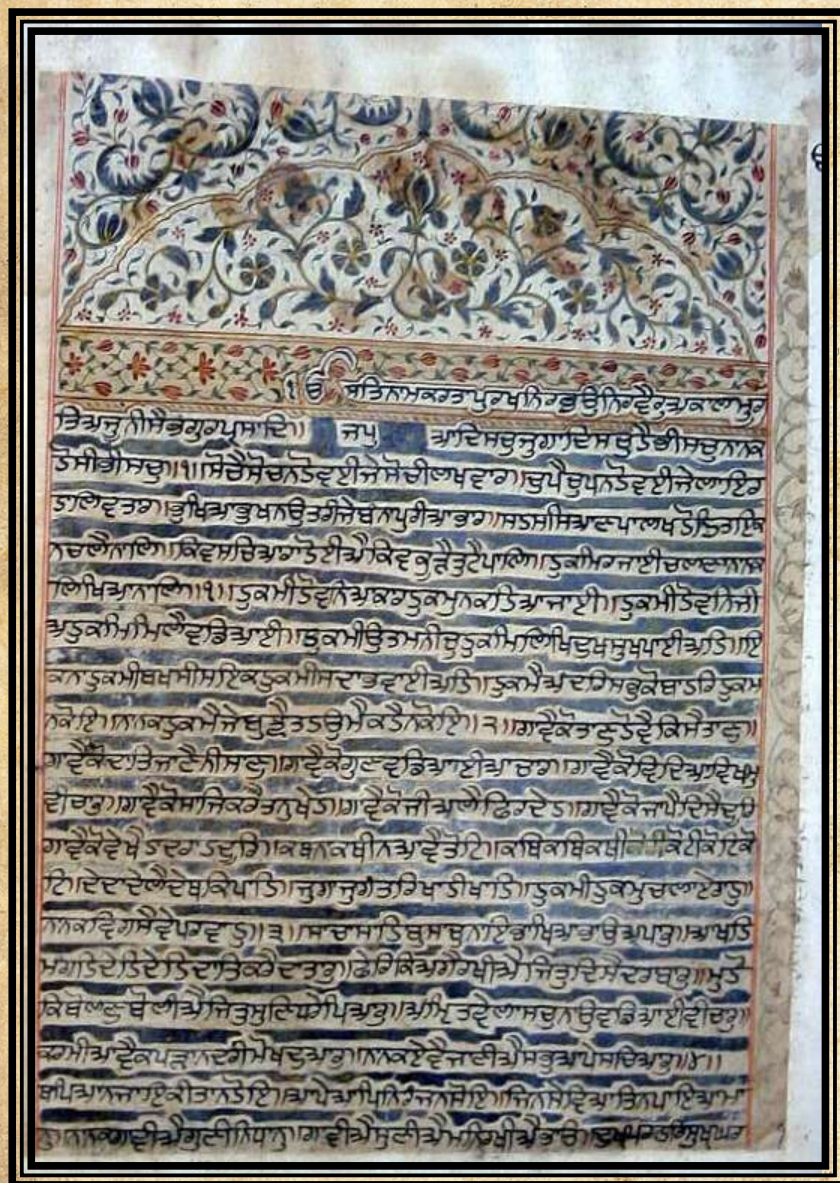 ੧ਓ ਸਤਿਨਾਮਕਰਤਾਪੁਰਖਨਿਰਭਉਨਿਰਵੈਰੁਅਕਾਲਮੂਰ
ਤਿਅਜੂਨੀਸੈਭੰਗੁਰਪ੍ਰਸਾਦਿ॥ ਜਪੁ ਆਦਿਸਚੁਜੁਗਾਦਿਸਚੁਹੈਭੀਸਚੁਨਾਨਕ
ਹੋਸੀਭੀਸਚੁ॥੧॥ਸੋਚੈਸੋਚਨਹੋਵਈਜੇਸੋਚੀਲਖਵਾਰ॥ਚੁਪੈਚੁਪਨਹੋਵਈਜੇਲਾਇਰ
ਹਾਲਿਵਤਾਰ॥ਭੁਖਿਆਭੁਖਨਉਤਰੀਜੇਬੰਨਾਪੁਰੀਆਭਾਰ॥ਸਹਸਸਿਆਣਪਾਲਖਹੋਹਿਤਇਕ
ਨਚਲੈਨਾਲਿ॥ਕਿਵਸਚਿਆਰਾਹੋਈਐਕਿਵਕੂੜੈਤੁਟੈਪਾਲਿ॥ਹੁਕਮਿਰਜਾਈਚਲਣਾਨਾਨਕ
ਲਿਖਿਆਨਾਲਿ॥੧॥ਹੁਕਮੀਹੋਵਨਿਆਕਾਰਹੁਕਮੁਨਕਹਿਆਜਾਈ॥ਹੁਕਮੀਹੋਵਨਿਜੀ
ਅਹੁਕਮਿਮਿਲੈਵਡਿਆਈ॥ਹੁਕਮੀਉਤਮਨੀਚੁਹੁਕਮਿਲਿਖਿਦੁਖਸੁਖਪਾਈਅਹਿ॥ਇ
ਕਨਾਹੁਕਮੀਬਖਸੀਸਇਕਹੁਕਮੀਸਦਾਭਵਾਈਅਹਿ॥ਹੁਕਮੈਅੰਦਰਿਸਭੁਕੋਬਾਹਰਿਹੁਕਮ
ਨਕੋਇ॥ਨਾਨਕਹੁਕਮੈਜੇਬੁਝੈਤਹਉਮੈਕਹੈਨਕੋਇ॥੨॥ਗਾਵੈਕੋਤਾਣੁਹੋਵੈਕਿਸੈਤਾਣੁ॥
ਗਾਵੈਕੋਦਾਤਿਜਾਣੈਨੀਸਾਣੁ॥ਗਾਵੈਕੋਗੁਣਵਡਿਆਈਆਚਾਰ॥ਗਾਵੈਕੋਵਿਦਿਆਵਿਖਮੁ
ਵੀਚਾਰੁ॥ਗਾਵੈਕੋਸਾਜਿਕਰੇਤਨੁਖੇਹ॥ਗਾਵੈਕੋਜੀਅਲੈਫਿਰਿਦੇਹ॥ਗਾਵੈਕੋਜਾਪੈਦਿਸੈਦੂਰਿ
ਗਾਵੈਕੋਵੇਖੈਹਾਦਰਾਹਦੂਰਿ॥ਕਥਨਾਕਥੀਨਆਵੈਤੋਟਿ॥ਕਥਿਕਥਿਕਥੀਕੋਟੀਕੋਟਿਕੋ
ਟਿ॥ਦੇਦਾਦੇਲੈਦੇਥਕਿਪਾਹਿ॥ਜੁਗਾਜੁਗੰਤਰਿਖਾਹੀਖਾਹਿ॥ਹੁਕਮੀਹੁਕਮੁਚਲਾਏਰਾਹੁ॥
ਨਾਨਕਵਿਗਸੈਵੇਪਰਵਾਹੁ॥੩॥ਸਾਚਾਸਾਹਿਬੁਸਾਚੁਨਾਇਭਾਖਿਆਭਾਉਅਪਾਰੁ॥ਆਖਹਿ
ਮੰਗਹਿਦੇਹਿਦੇਹਿਦਾਤਿਕਰੇਦਾਤਾਰੁ॥ਫੇਰਿਕਿਅਗੈਰਖੀਐਜਿਤੁਦਿਸੈਦਰਬਾਰੁ॥ਮੁਹੌ
ਕਿਬੋਲਣੁਬੋਲੀਐਜਿਤੁਸੁਣਿਧਰੇਪਿਆਰੁ॥ਅੰਮ੍ਰਿਤਵੇਲਾਸਚੁਨਾਉਵਡਿਆਈਵੀਚਾਰੁ॥
ਕਰਮੀਆਵੈਕਪੜਾਨਦਰੀਮੋਖਦੁਆਰੁ॥ਨਾਨਕਏਵੈਜਾਣੀਐਸਭੁਆਪੇਸਚਿਆਰੁ॥੪॥
ਥਾਪਿਆਨਜਾਇਕੀਤਾਨਹੋਇ॥ਆਪੇਆਪਿਨਿਰੰਜਨਸੋਇ॥ਜਿਨਿਸੇਵਿਆਤਿਨਿਪਾਇਆਮਾ
ਨੁ॥ਨਾਨਕਗਾਵੀਐਗੁਣੀਨਿਧਾਨੁ॥ਗਾਵੀਐਸੁਣੀਐਮਨਿਰਖੀਐਭਾਉ॥ਦੁਖਪਰਹਰਿਸੁਖੁਘਰ